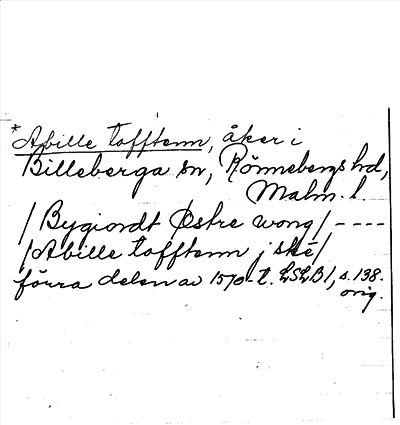 *Abille tofftenn, åker i
Billeberga sn, Rönnebergs hd,
Malm. l
/ Bygiordt Østre wong / ----
/ Abille tofftenn j skē /
förra delen av 1570-t. LSLB 1, s. 138.
orig.